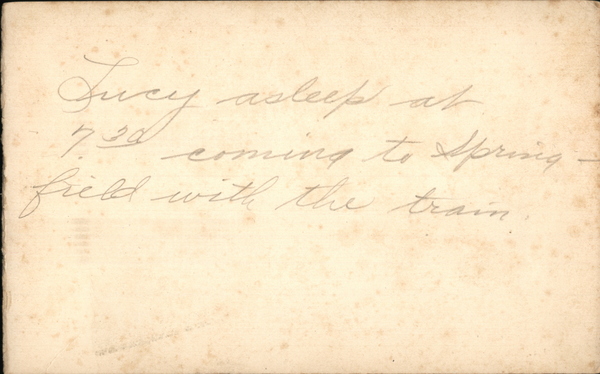 Lucy asleep at
7.30 coming to Spring-
field with the train.